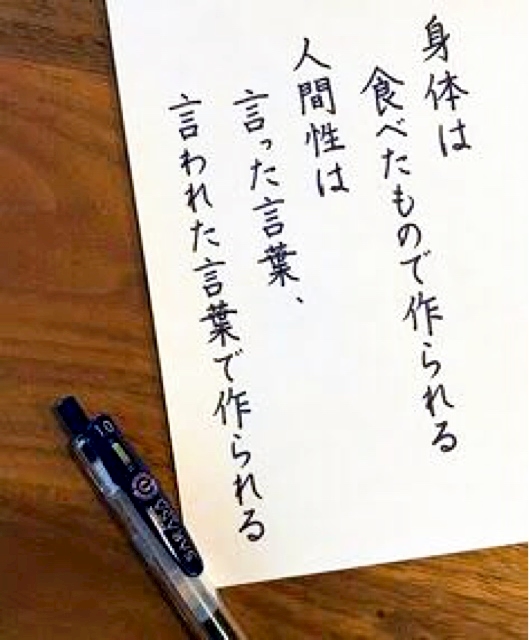 身体は
食べたもので作られる
人間性は
言った言葉、
言われた言葉で作られる
SARASA